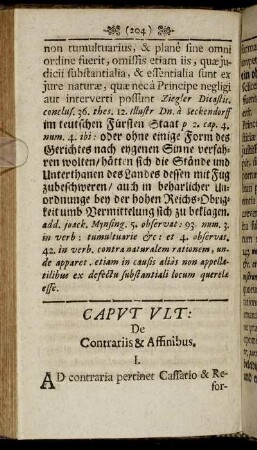 (204)
non tumultuarius, & planè sine omni
ordine fuerit, omissis etiam iis, quæ ju-
dicii substantialia, & essentialia sunt ex
jure naturæ, quæ nec à Principe negligi
aut interverti possunt Ziegler Dicastic.
concluſ. 36. thes. 12. illustr Dn. à Seckendorff
im teutschen Fürsten Staat p 2. cap. 4.
num. 4. ibi: oder ohne einige Form des
Gerichtes nach eygenen Sinne verfah-
ren wolten/ hätten sich die Stände und
Unterthanen des Landes dessen mit Fug
zubeschweren/ auch in beharlicher Un-
ordnunge bey der hohen Reichs-Obrig-
keit umb Vermittelung sich zu beklagen.
add. joach. Mynsing. 5. observat: 93. num. 3.
in verb: tumultuarie &c: et 4. observat.
42. in verb. contra naturalem rationem, un-
de apparet. etiam in causis aliàs non appella-
bilibus ex defectu substantiali locum querelæ
esse.
CAPVT VLT:
De
Contrariis & Affinibus.
I.
AD contraria pertinet Cassatio & Re-
for-